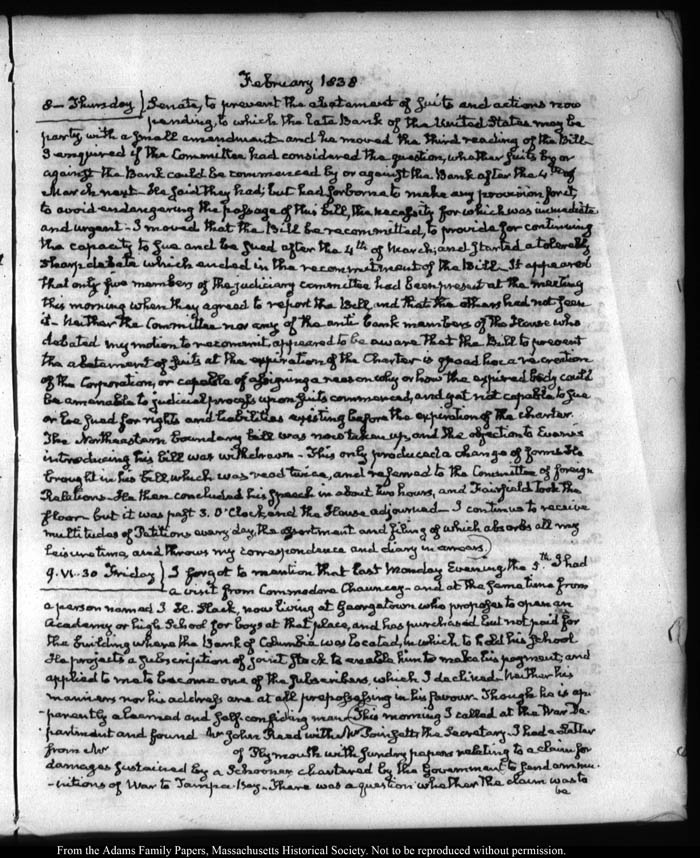 February 1838
8 – Thursday } Senate, to prevent the abatement of suits and actions now
pending, to which the late Bank of the United States may be
party, with a small amendment – and he moved the third reading of the Bill –
I enquired if the Committee had considered the question, whether suits by or
against the Bank could be commenced by or against the Bank after the 4th of
March next – He said they had; but had forborne to make any provision for it,
to avoid endangering the passage of this bill, the necessity for which was immediate
and urgent – I moved that the Bill be recommitted, to provide for continuing
the capacity to sue and be sued after the 4th of March; and started a tolerably
sharp debate which ended in the recommitment of the Bill – It appeared
that only five members of the judiciary committee had been present at the meeting
this morning when they agreed to report the Bill, and that the others had not seen
it – Neither the Committee nor any of the anti bank members of the House who
debated my motion to recommit, appeared to be aware that the Bill to prevent
the abatement of suits at the expiration of the Charter is quoad hoc a re-creation
of the Corporation, or capable of assigning a reason why or how the expired body could
be amenable to judicial process upon suits commenced, and yet not capable to sue
or be sued for rights and liabilities existing before the expiration of the charter.
The Northeastern boundary bill was now taken up, and the objection to Evans's
introducing his bill was withdrawn – This only produced a change of form. He
brought in his bill which was read twice, and referred to the Committee of foreign
Relations – He then concluded his speech in about two hours, and Fairfield took the
floor – but it was past 3. O'Clock, and the House adjourned – I continue to receive
multitudes of Petitions every day, the assortment and filing of which absorbs all my
leisure time, and throws my correspondence and diary in arrears.
9. VI. 30 Friday } I forgot to mention that last Monday Evening the 5th I had
a visit from Commodore Chauncey – and at the same time from
a person named J. Slack, now living at Georgetown who proposes to open an
Academy or high School for boys at that place, and has purchased but not paid for
the building where the Bank of Columbia was located, in which to hold his school
He projects a subscription of joint Stock to enable him to make his payment, and
applied to me to become one of the subscribers, which I declined – Neither his
manners nor his address are at all prepossessing in his favour. Though he is ap-
-parently a learned and self-confiding man – This morning I called at the War De-
-partment and found Mr John Reed with Mr Poinsett the Secretary. I had a Letter
from Mr of Plymouth with sundry papers relating to a claim for
damages sustained by a Schooner chartered by the Government to send ammu-
-nitions of War to Tampa Bay – There was a question whether the claim was to
be
From the Adams Family Papers, Massachusetts Historical Society. Not to be reproduced without permission.